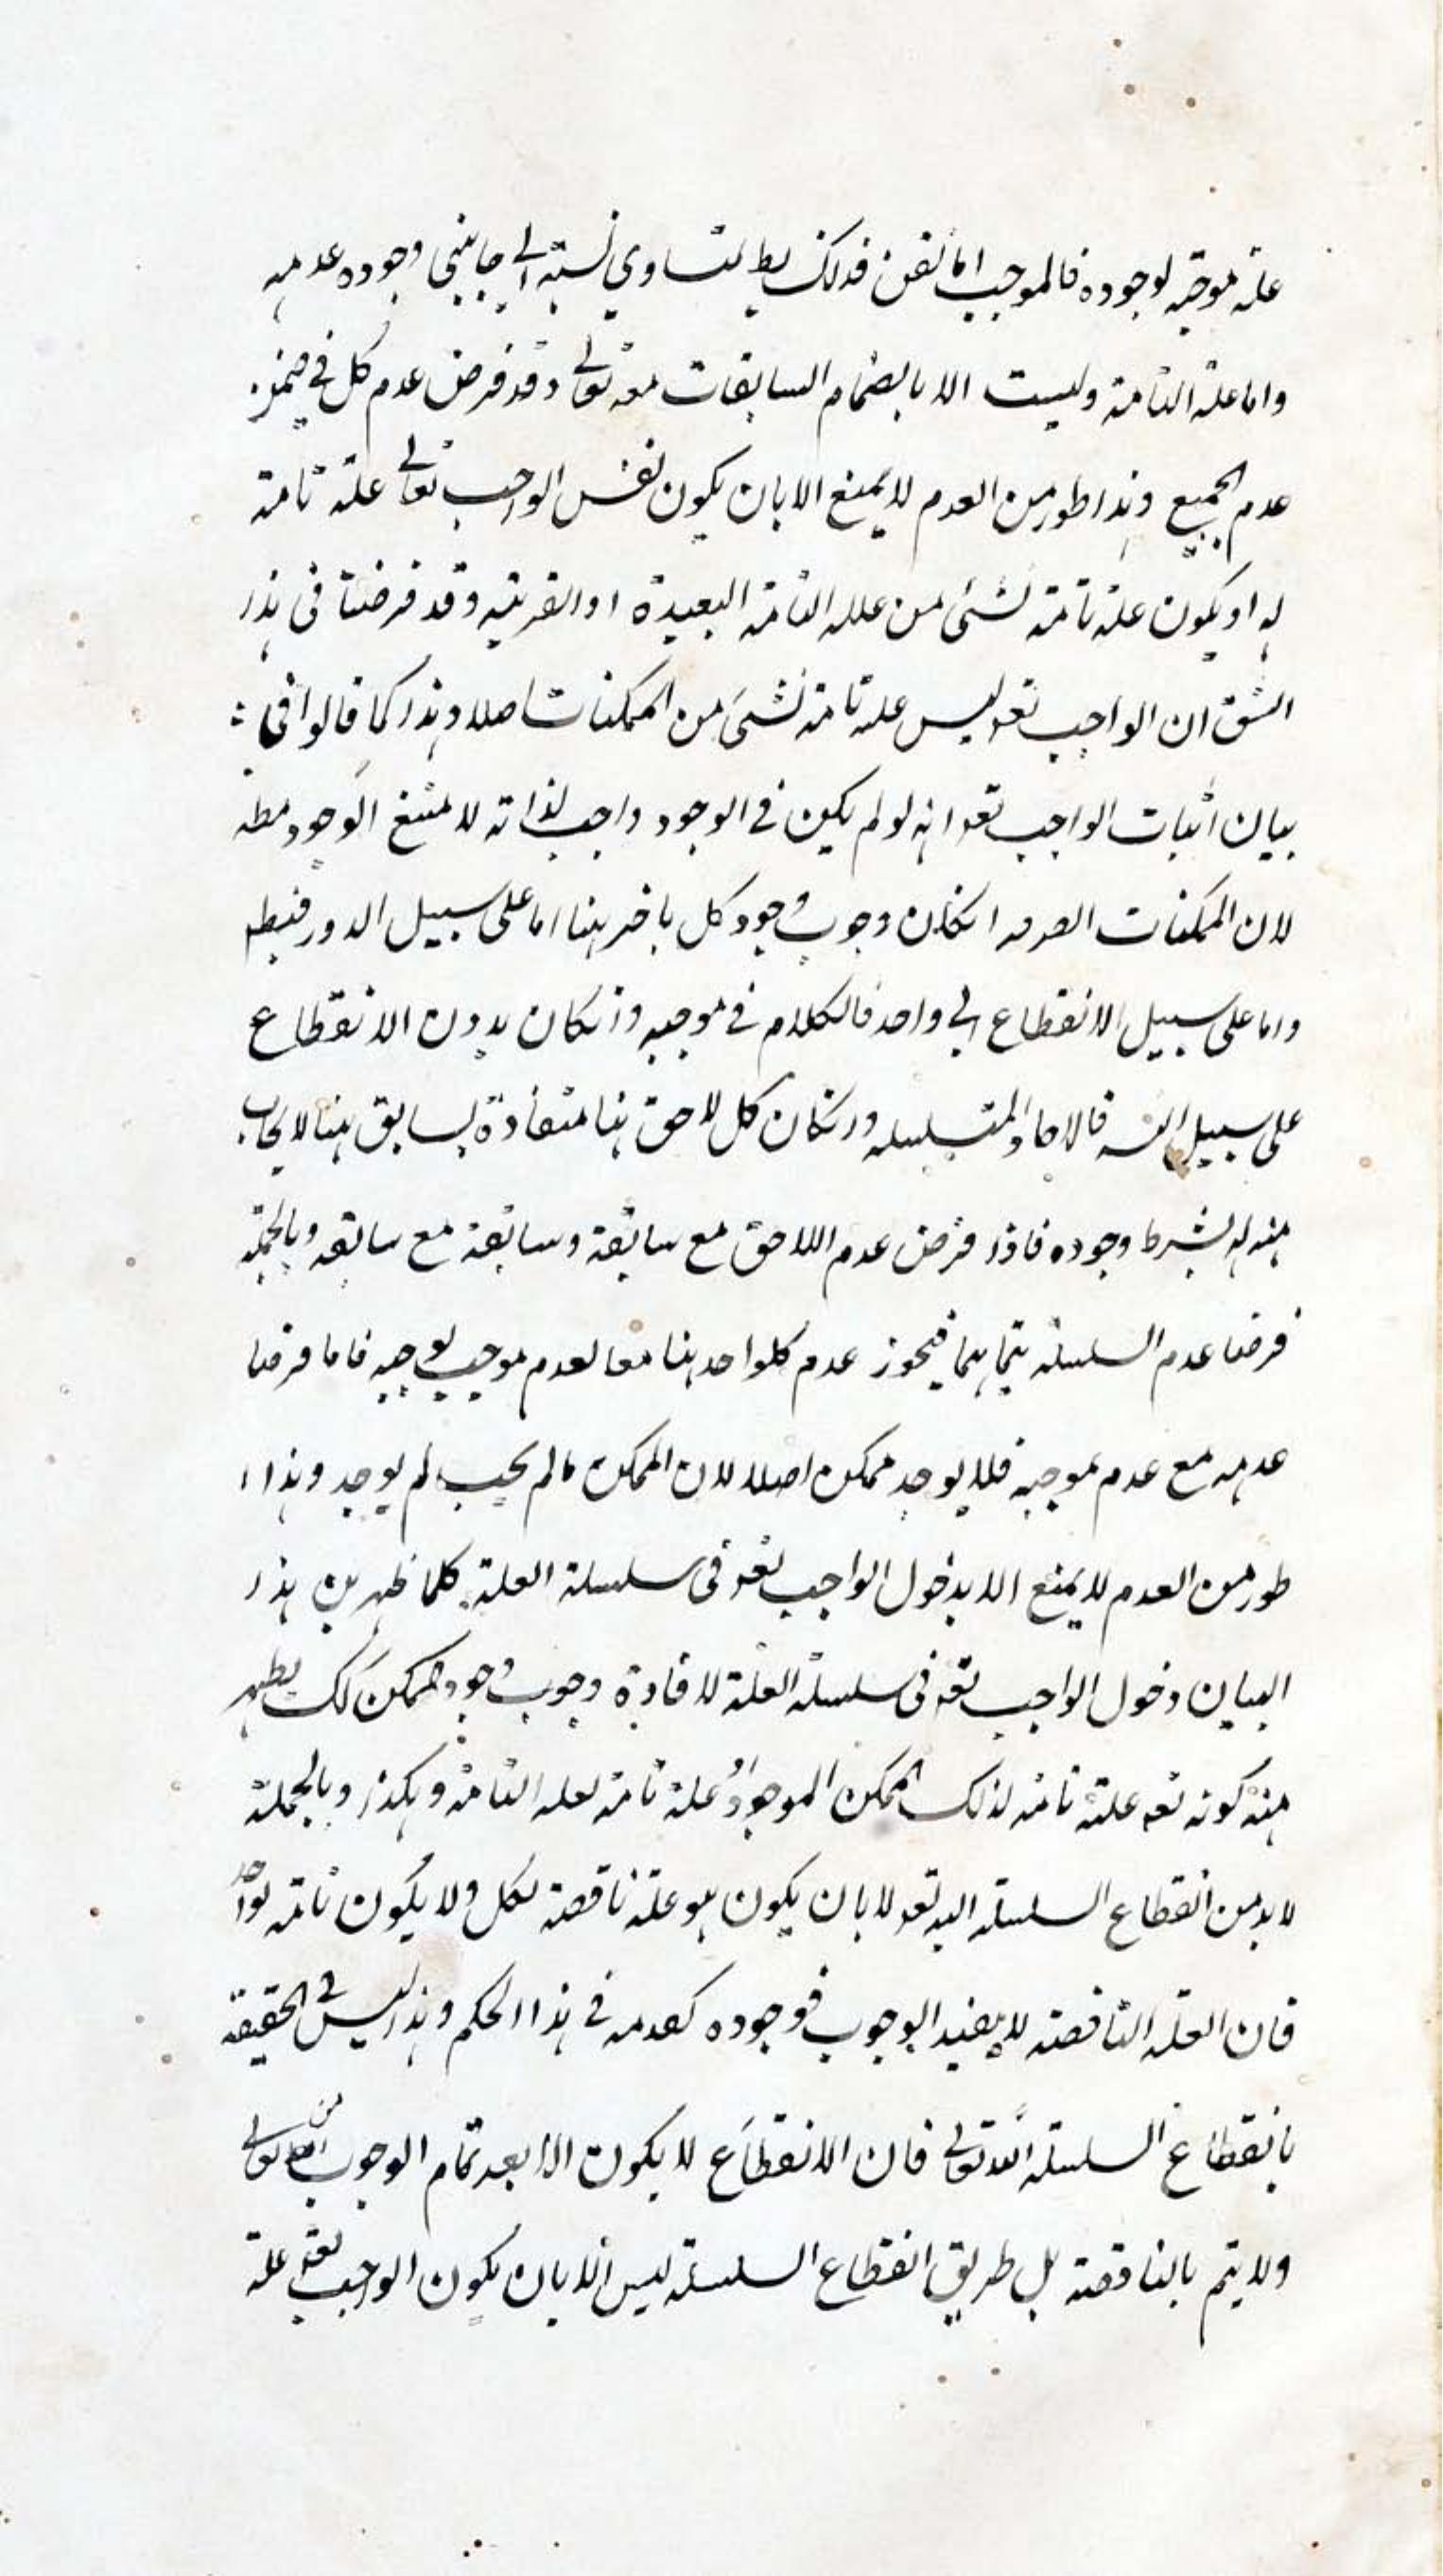 علة موجبة لوجوده فالموجب اما نفسه فذلك بط لتساوي نسبته الى جانبي وجوده عدمه
واما علته التامة وليست الا بانضمام السابقات معه تعالى وقد فرض عدم كل في ضمن
عدم الجميع وهذا طور من العدم لا يمنع الا بان يكون نفس الواجب تعالى علة تامة
له او يكون علة تامة لشئ من علله التامة البعيدة او القريبة وقد فرضنا في هذا
الشق ان الواجب تعه ليس علة تامة لشئ من الممكنات اصلا وهذا كما قالوا في
بيان اثبات الواجب تعه انه لو لم يكن في الوجود واجب لذاته لامتنع الوجود مطه
لان الممكنات الصرفه انكان وجوب وجود كل باخر منها اما على سبيل الدور فبطه
واما على سبيل الانقطاع الى واحد فالكلام في موجبه وانكان بدون الانقطاع
على سبيل التسه فالاحاد المتسلسله وانكان كل لاحق منها مستفادة لسابق منها لايجاب
منه له بشرط وجوده فاذا فرض عدم اللاحق مع سابقه وسابقه مع سابقه وبالجملة
فرضنا عدم السلسلة بتمامها فيجوز عدم كلواحد منها معا لعدم موجب يوجبه فاما فرضنا
عدمه مع عدم موجبه فلا يوجد ممكن اصلا لان الممكن ما لم يجب لم يوجد وهذا
طور من العدم لا يمنع الا بدخول الواجب تعه في سلسلة العلة كلما ظهر من هذا
البيان دخول الواجب تعه في سلسلة العلة لافادة وجوب وجود ممكن كك يظهر
منه كونه تعه علة تامة لذلك الممكن الموجود او علة تامة لعلته التامة وهكذا وبالجملة
لابد من انقطاع السلسلة اليه تعه لا بان يكون هو علة ناقصة لكل ولا يكون تامة لواحد
فان العلة الناقصة لا يفيد الوجوب فوجوده كعدمه في هذا الحكم وهذا ليس في الحقيقة
بانقطاع السلسلة اليه تعالى فان الانقطاع لا يكون الا بعد تمام الوجوب من تعالى
ولا يتم بالناقصة بل طريق انقطاع السلسلة ليس الا بان يكون الواجب تعه علة